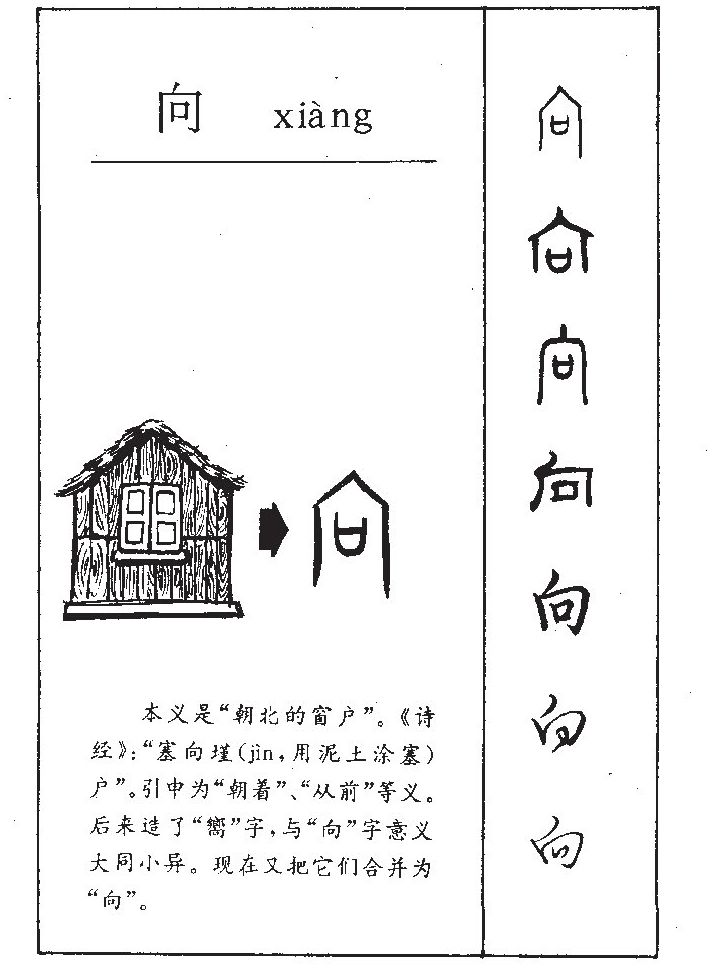 向 xiàng
本义是“朝北的窗户”。《诗
经》：“塞向瑾(jìn，用泥土涂塞)
户”。引申为“朝着”、“从前”等义。
后来造了“嚮”字，与“向”字意义
大同小异。现在又把它们合并为
“向”。
向
向
向
向
向
向
向
向